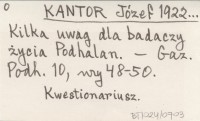 O
KANTOR Józef 1922...
Kilka uwag dla badaczy
życia Podhalan. — Gaz.
Podh. 10, nry 48-50.
Kwestionariusz.